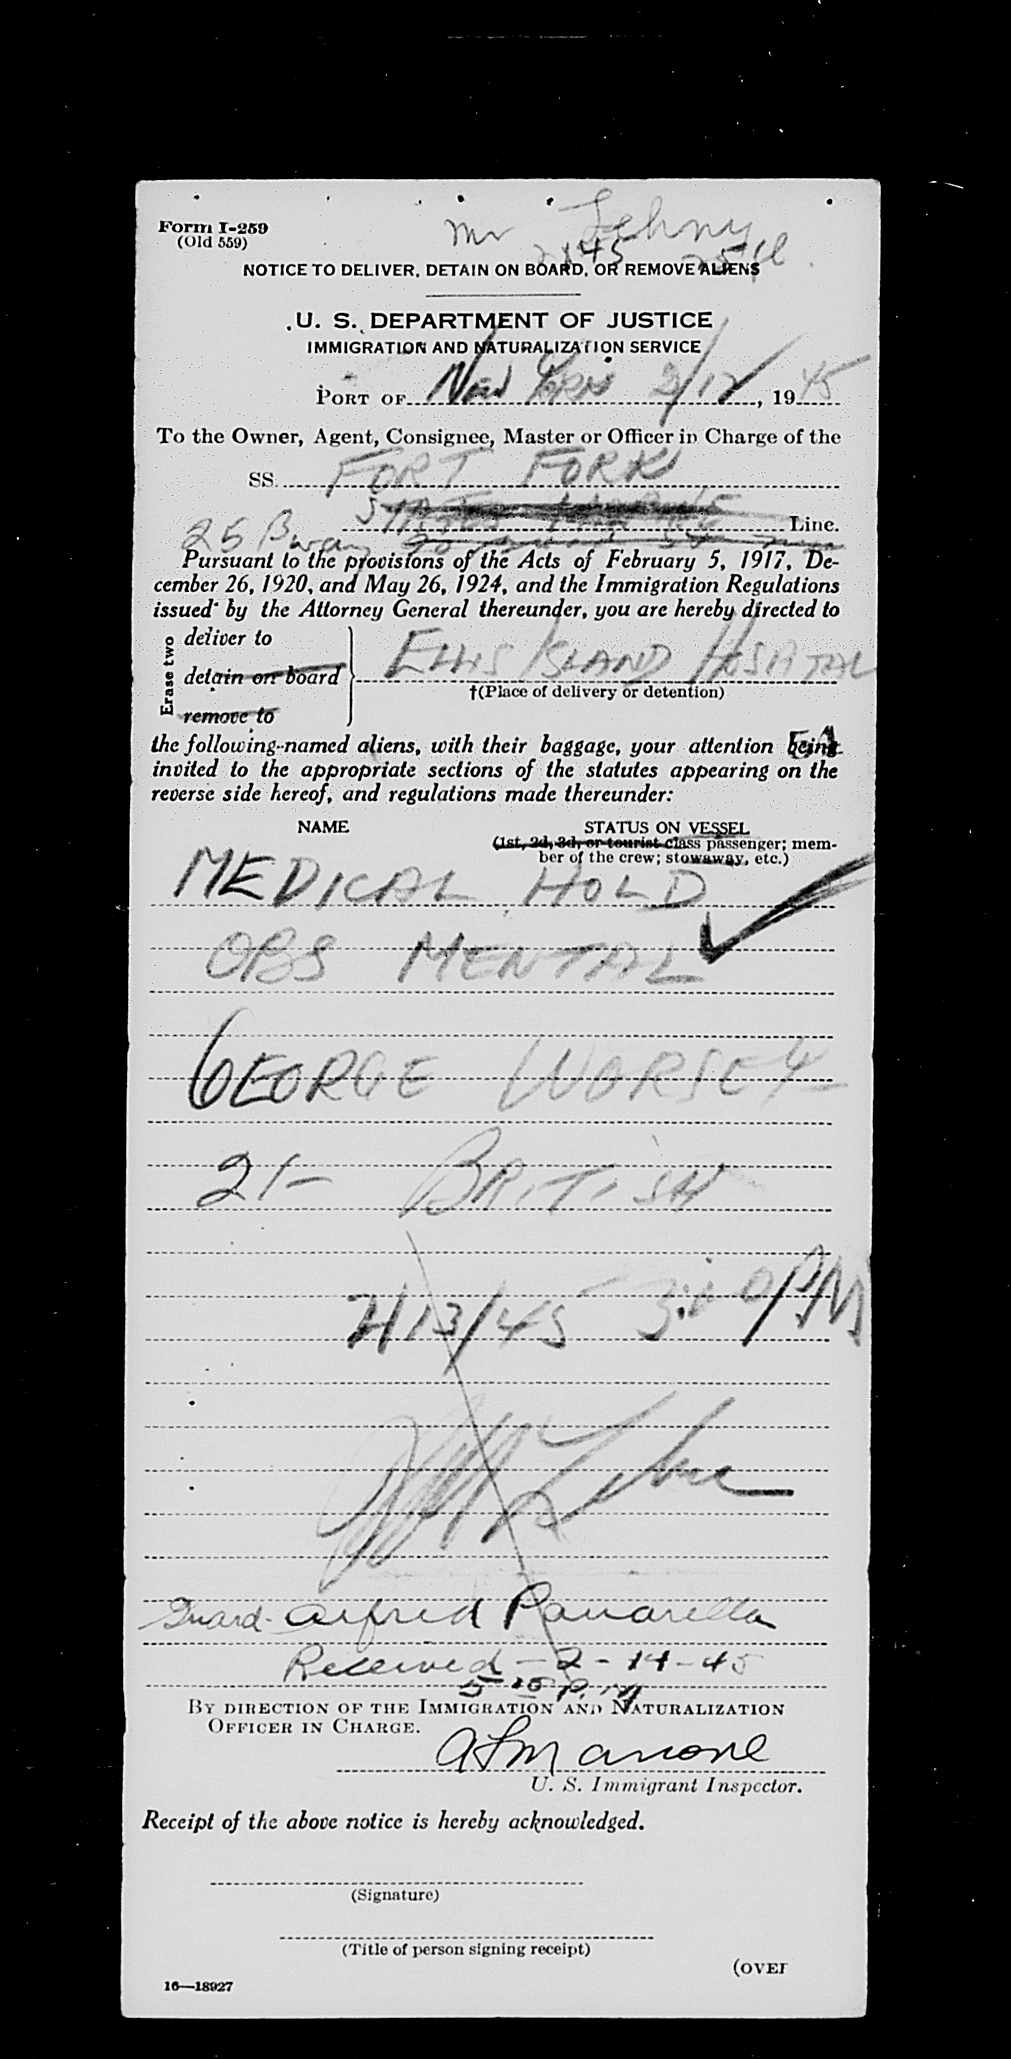 Form I-259
(Old 559)
Mr Lehny
2145 25
NOTICE TO DELIVER, DETAIN ON BOARD, OR REMOVE ALIENS
U. S. DEPARTMENT OF JUSTICE
IMMIGRATION AND NATURALIZATION SERVICE
PORT OF NEW YORK 2/12, 1945
To the Owner, Agent, Consignee, Master or Officer in Charge of the
SS. FORT FORK
Line.
25 Bway
Pursuant to the provisions of the Acts of February 5, 1917, De-
cember 26, 1920, and May 26, 1924, and the Immigration Regulations
issued by the Attorney General thereunder, you are hereby directed to
Erase two
deliver to
detain on board
remove to
ELLIS ISLAND HOSPITAL
†(Place of delivery or detention)
the following-named aliens, with their baggage, your attention being
invited to the appropriate sections of the statutes appearing on the
reverse side hereof, and regulations made thereunder:
NAME STATUS ON VESSEL
(1st, 2d, 3d, or tourist class passenger; mem-
ber of the crew; stowaway, etc.)
MEDICAL HOLD
OBS MENTAL
GEORGE WORSEY
21- BRITISH
2/13/45 3:10 PM
Guard- Alfred Panarella
Received - 2-14-45
5 15 P.M
BY DIRECTION OF THE IMMIGRATION AND NATURALIZATION
OFFICER IN CHARGE.
U. S. Immigrant Inspector.
Receipt of the above notice is hereby acknowledged.
(Signature)
(Title of person signing receipt)
(OVER
16—18927